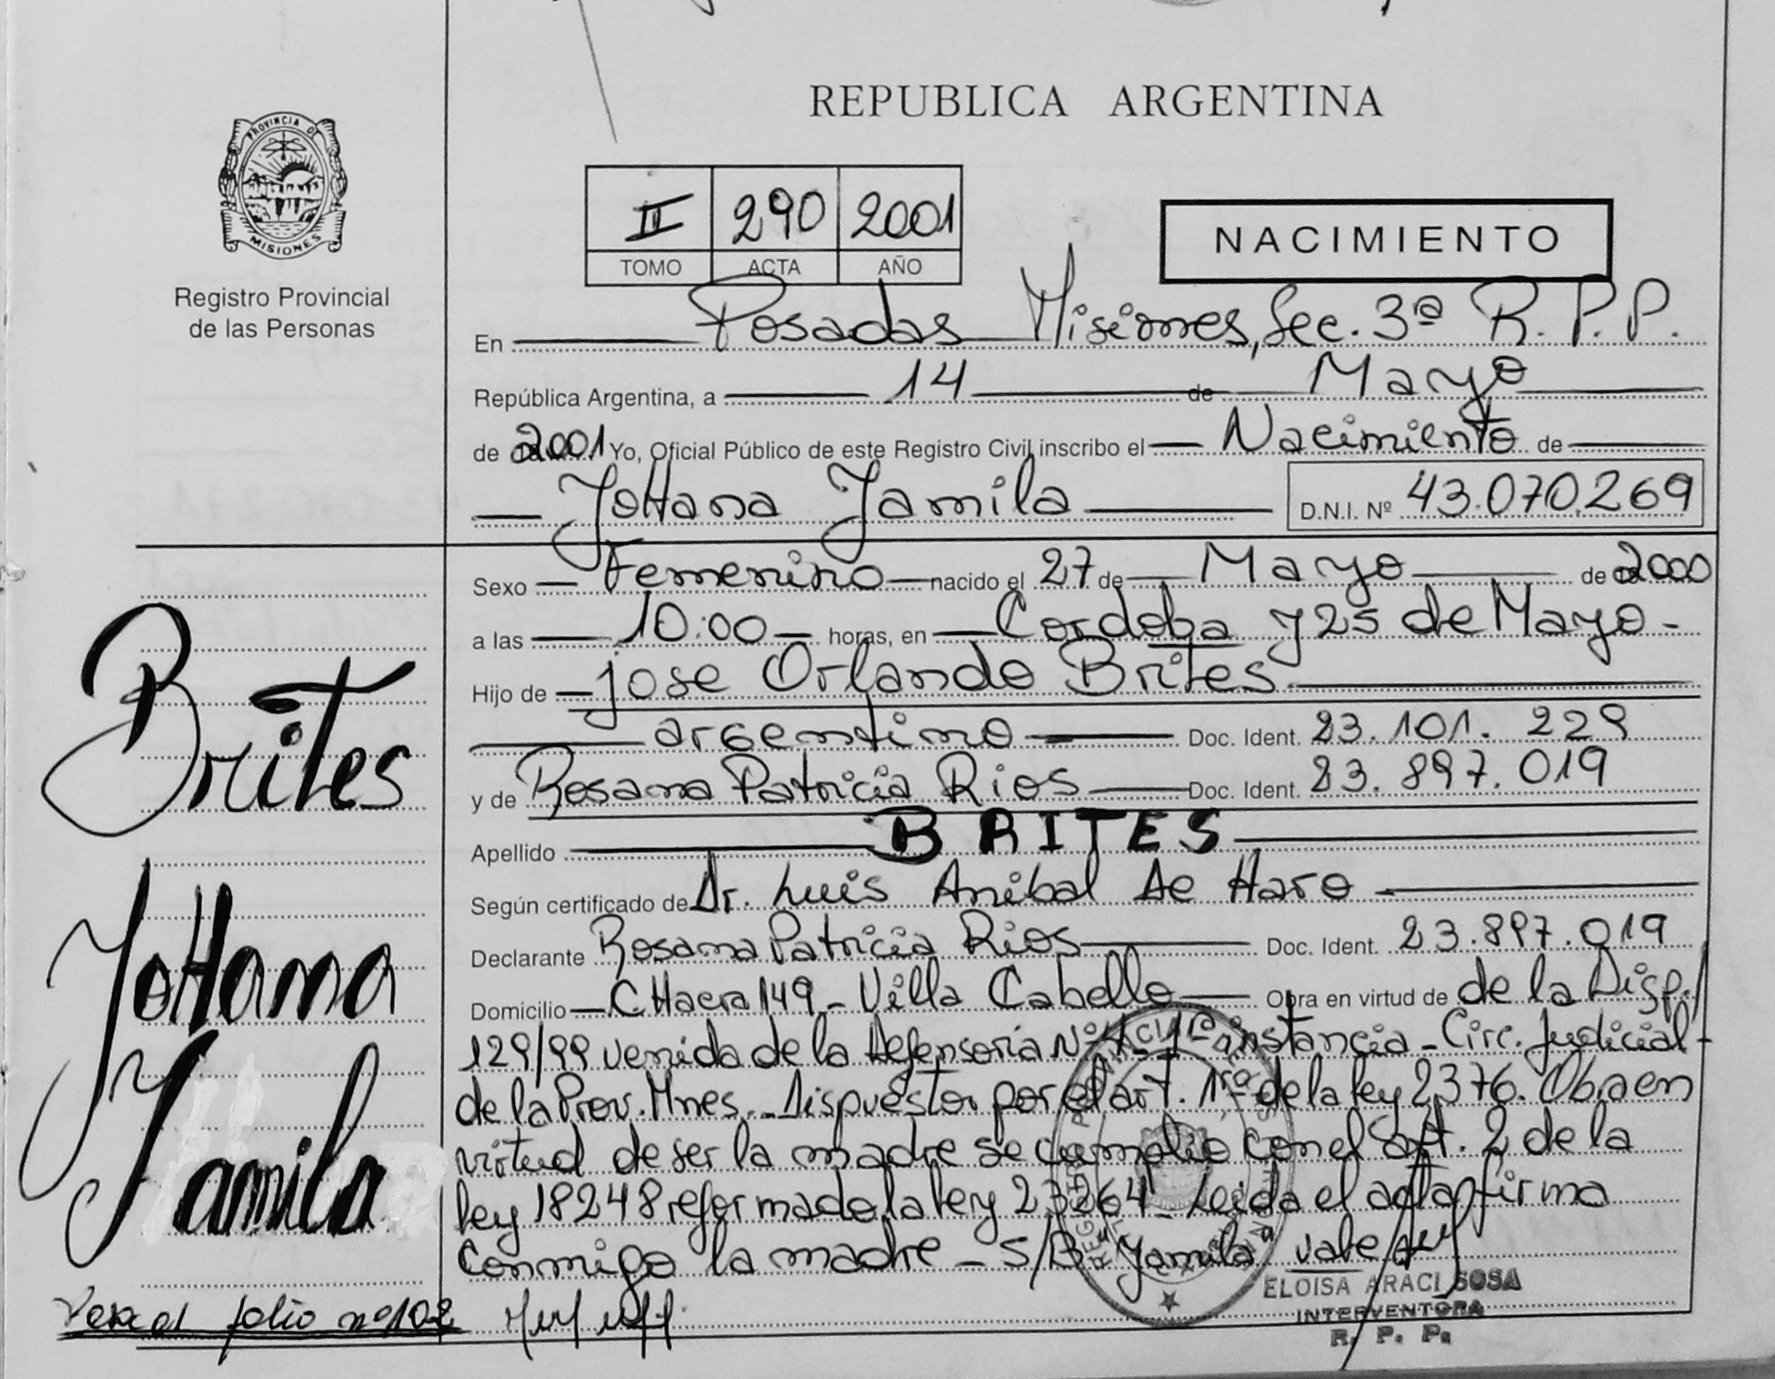 REPUBLICA ARGENTINA
PROVINCIA DE
MISIONES
Registro Provincial
de las Personas
II 290 2001
TOMO ACTA AÑO
NACIMIENTO
En Posadas Misiones, Sec. 3ª R. P. P.
República Argentina, a 14 de Mayo
de 2001 Yo, Oficial Público de este Registro Civil inscribo el Nacimiento de
JoHana Yamila D.N.I. Nº 43.070.269
Sexo Femenino nacido el 27 de Mayo de 2000
a las 10:00 horas, en Cordoba y 25 de Mayo -
Hijo de jose Orlando Brites
argentino Doc. Ident. 23.101.229
y de Rosana Patricia Rios Doc. Ident. 23.897.019
Apellido BRITES
Según certificado de Dr. Luis Anibal De Haro -
Declarante Rosana Patricia Rios Doc. Ident. 23.897.019
Domicilio CHacra 149 - Villa Cabello Obra en virtud de de la Disp.
129/99 venida de la Defensoria Nº 1 - 1ª instancia - Circ. Judicial -
de la Prov. Mnes. - Dispuesto por el art. 1º de la ley 2376. Obra en
virtud de ser la madre se cumplio con el art. 2 de la
ley 18248 reformado la ley 23264 - Leida el acta firma
conmigo la madre - S/B Yamila vale
Brites
JoHana
Yamila
folio nº 102
ELOISA ARACI SOSA
INTERVENTORA
R. P. P.